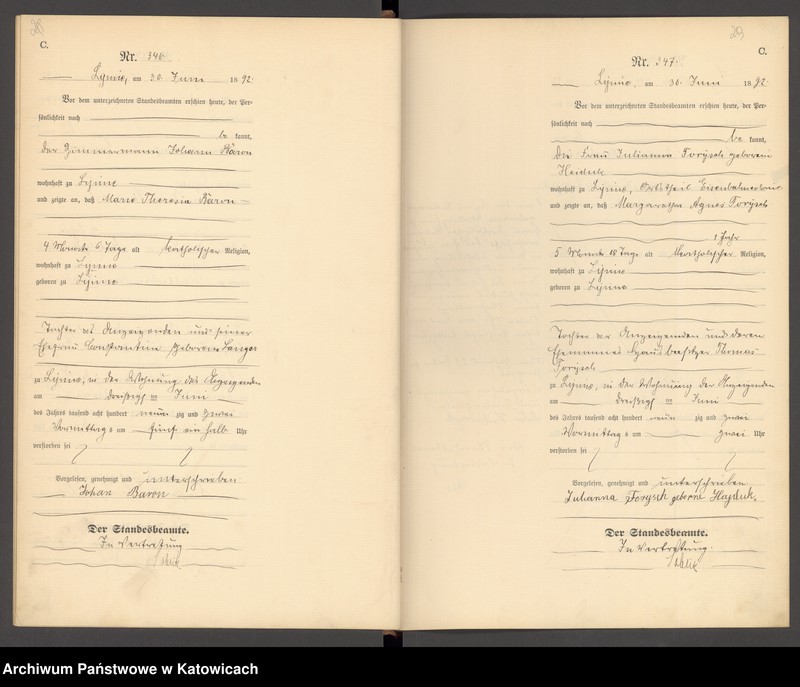 C.
Nr. 346.
Lipine, am 30. Juni 1892.
Vor dem unterzeichneten Standesbeamten erschien heute, der Per-
sönlichkeit nach
be kannt,
der Zimmermann Johann Baron
wohnhaft zu Lipine
und zeigte an, daß Marie Theresia Baron
4 Monate 6 Tage alt katholischer Religion,
wohnhaft zu Lipine
geboren zu Lipine
Tochter des Anzeigenden und seiner
Ehefrau Constantine geborene Langer
zu Lipine, in der Wohnung des Anzeigenden
am dreißigsten Juni
des Jahres tausend acht hundert neun zig und zwei
Vormittags um fünf ein halb Uhr
verstorben sei
Vorgelesen, genehmigt und unterschrieben
Johan Baron
Der Standesbeamte.
In Vertretung
C.
Nr. 347.
Lipine, am 30. Juni 1892.
Vor dem unterzeichneten Standesbeamten erschien heute, der Per-
sönlichkeit nach
be kannt,
die Frau Julianna Forysch geborene
Heiduk
wohnhaft zu Lipine, Ortstheil
und zeigte an, daß Margarethe Agnes Forysch
1 Jahr
5 Monate 18 Tage alt katholischer Religion,
wohnhaft zu Lipine
geboren zu Lipine
Tochter der Anzeigenden und deren
Ehemannes Hausbesitzer Thomas
Forysch
zu Lipine, in der Wohnung der Anzeigenden
am dreißigsten Juni
des Jahres tausend acht hundert neun zig und zwei
Vormittags um zwei Uhr
verstorben sei
Vorgelesen, genehmigt und unterschrieben
Julianna Forysch geborne Hajduk.
Der Standesbeamte.
In Vertretung.
Archiwum Państwowe w Katowicach